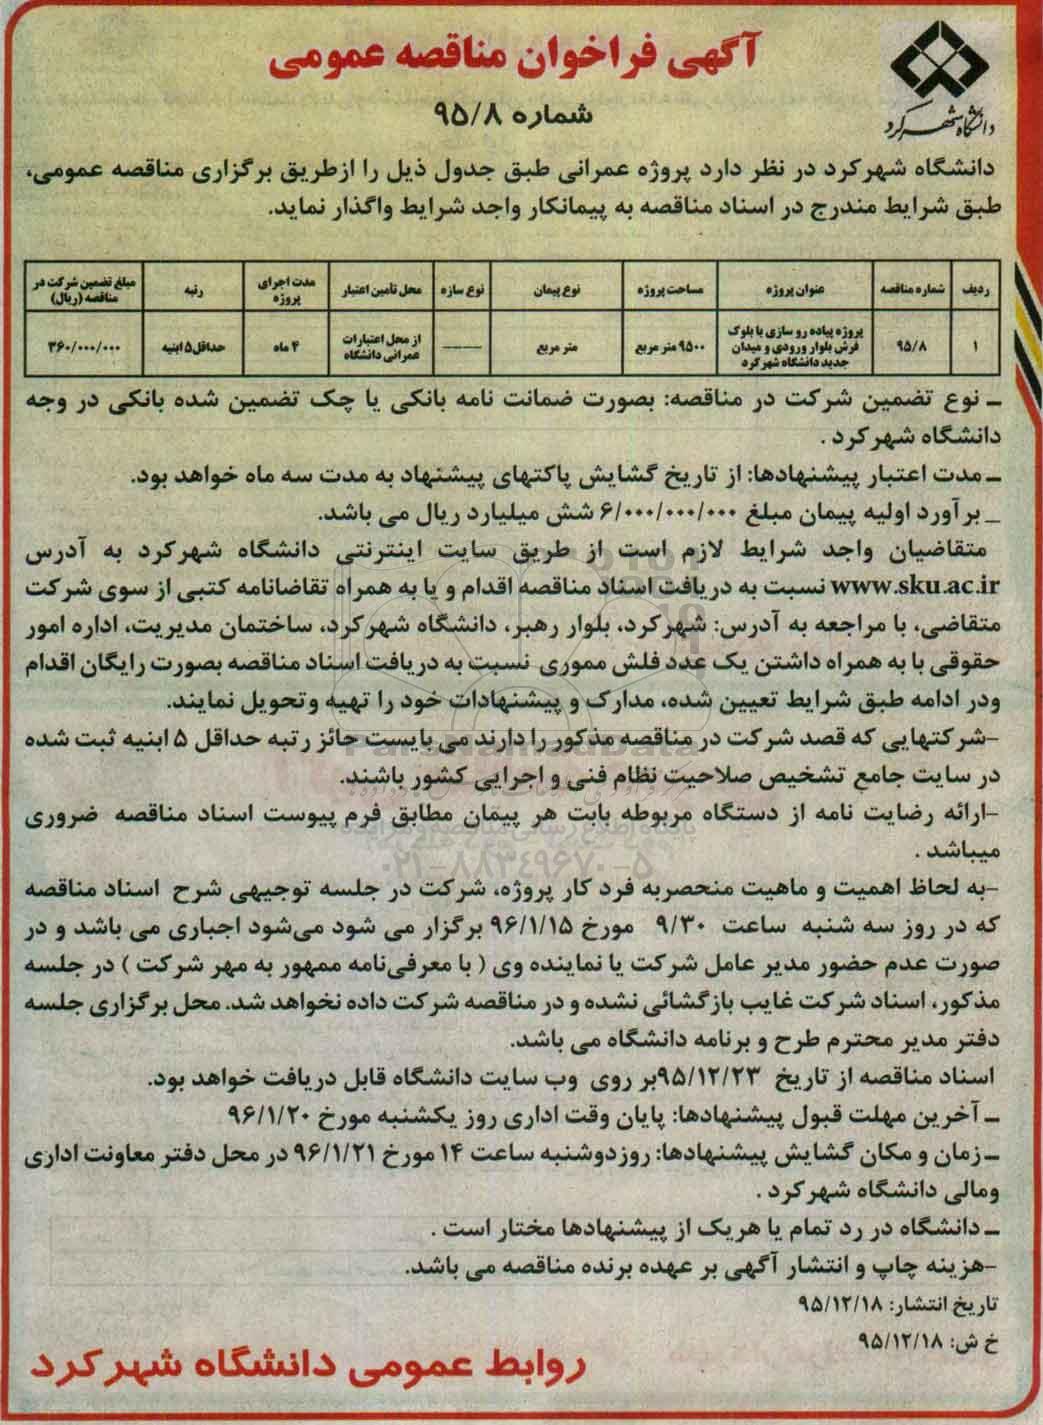 دانشگاه شهرکرد
آگهی فراخوان مناقصه عمومی
شماره ۹۵/۸
دانشگاه شهرکرد در نظر دارد پروژه عمرانی طبق جدول ذیل را ازطریق برگزاری مناقصه عمومی،
طبق شرایط مندرج در اسناد مناقصه به پیمانکار واجد شرایط واگذار نماید.
ردیف شماره مناقصه عنوان پروژه مساحت پروژه نوع پیمان نوع سازه محل تأمین اعتبار مدت اجرای پروژه رتبه مبلغ تضمین شرکت در مناقصه (ریال)
۱ ۹۵/۸ پروژه پیاده رو سازی با بلوک فرش بلوار ورودی و میدان جدید دانشگاه شهرکرد ۹۵۰۰ متر مربع متر مربع ---- از محل اعتبارات عمرانی دانشگاه ۴ ماه حداقل ۵ ابنیه ۳۶۰/۰۰۰/۰۰۰
ـ نوع تضمین شرکت در مناقصه: بصورت ضمانت نامه بانکی یا چک تضمین شده بانکی در وجه
دانشگاه شهرکرد .
ـ مدت اعتبار پیشنهادها: از تاریخ گشایش پاکتهای پیشنهاد به مدت سه ماه خواهد بود.
_ برآورد اولیه پیمان مبلغ ۶/۰۰۰/۰۰۰/۰۰۰ شش میلیارد ریال می باشد.
متقاضیان واجد شرایط لازم است از طریق سایت اینترنتی دانشگاه شهرکرد به آدرس
www.sku.ac.ir نسبت به دریافت اسناد مناقصه اقدام و یا به همراه تقاضانامه کتبی از سوی شرکت
متقاضی، با مراجعه به آدرس: شهرکرد، بلوار رهبر، دانشگاه شهرکرد، ساختمان مدیریت، اداره امور
حقوقی با به همراه داشتن یک عدد فلش مموری نسبت به دریافت اسناد مناقصه بصورت رایگان اقدام
ودر ادامه طبق شرایط تعیین شده، مدارک و پیشنهادات خود را تهیه وتحویل نمایند.
-شرکتهایی که قصد شرکت در مناقصه مذکور را دارند می بایست حائز رتبه حداقل ۵ ابنیه ثبت شده
در سایت جامع تشخیص صلاحیت نظام فنی و اجرایی کشور باشند.
-ارائه رضایت نامه از دستگاه مربوطه بابت هر پیمان مطابق فرم پیوست اسناد مناقصه ضروری
میباشد .
۰۲۱-۸۸۳۴۹۶۷۰-۵
-به لحاظ اهمیت و ماهیت منحصربه فرد کار پروژه، شرکت در جلسه توجیهی شرح اسناد مناقصه
که در روز سه شنبه ساعت ۹/۳۰ مورخ ۹۶/۱/۱۵ برگزار می شود می‌شود اجباری می باشد و در
صورت عدم حضور مدیر عامل شرکت یا نماینده وی ( با معرفی‌نامه ممهور به مهر شرکت ) در جلسه
مذکور، اسناد شرکت غایب بازگشائی نشده و در مناقصه شرکت داده نخواهد شد. محل برگزاری جلسه
دفتر مدیر محترم طرح و برنامه دانشگاه می باشد.
اسناد مناقصه از تاریخ ۹۵/۱۲/۲۳بر روی وب سایت دانشگاه قابل دریافت خواهد بود.
ـ آخرین مهلت قبول پیشنهادها: پایان وقت اداری روز یکشنبه مورخ ۹۶/۱/۲۰
ـ زمان و مکان گشایش پیشنهادها: روزدوشنبه ساعت ۱۴ مورخ ۹۶/۱/۲۱ در محل دفتر معاونت اداری
ومالی دانشگاه شهرکرد .
ـ دانشگاه در رد تمام یا هریک از پیشنهادها مختار است .
-هزینه چاپ و انتشار آگهی بر عهده برنده مناقصه می باشد.
تاریخ انتشار: ۹۵/۱۲/۱۸
خ ش: ۹۵/۱۲/۱۸
روابط عمومی دانشگاه شهرکرد